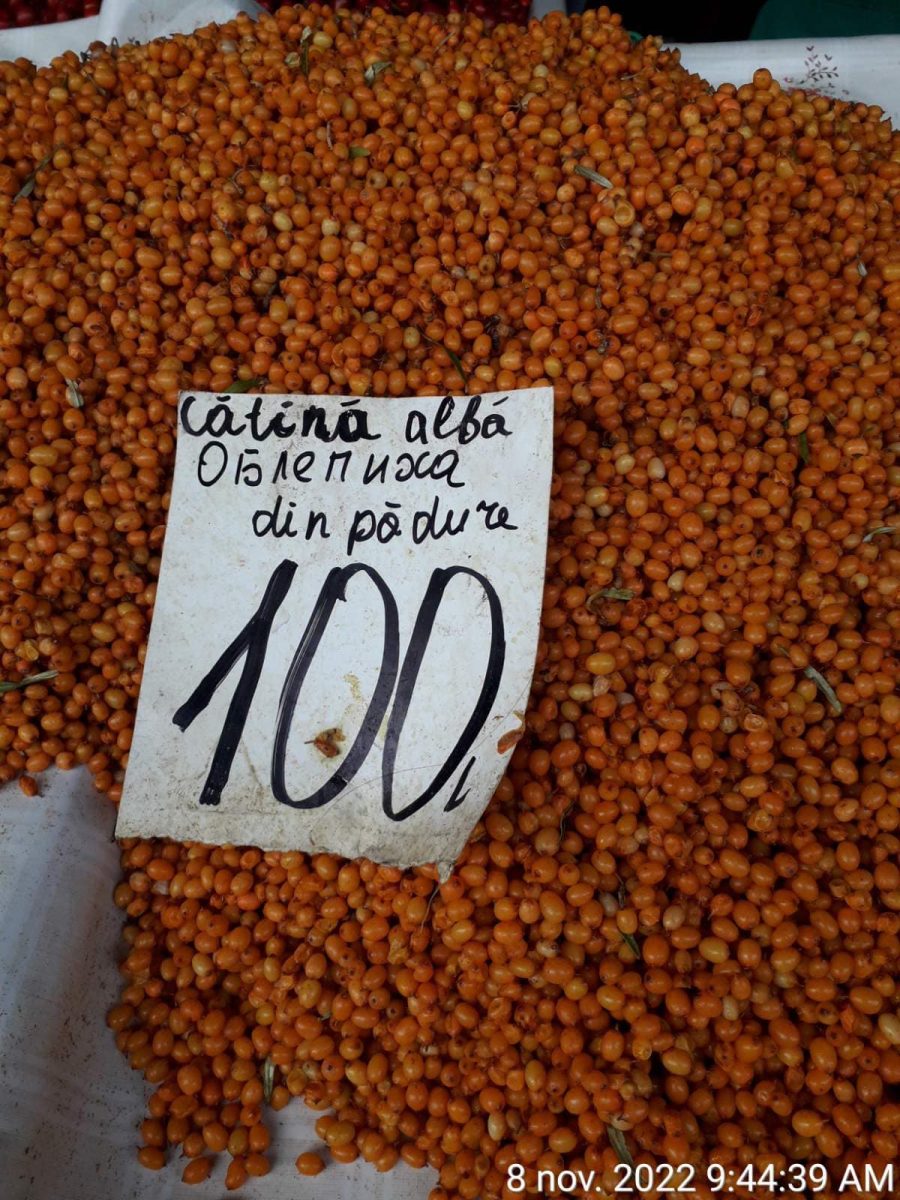 Cătină albă
Облепиха
din pădure
100 L
8 nov. 2022 9:44:39 AM